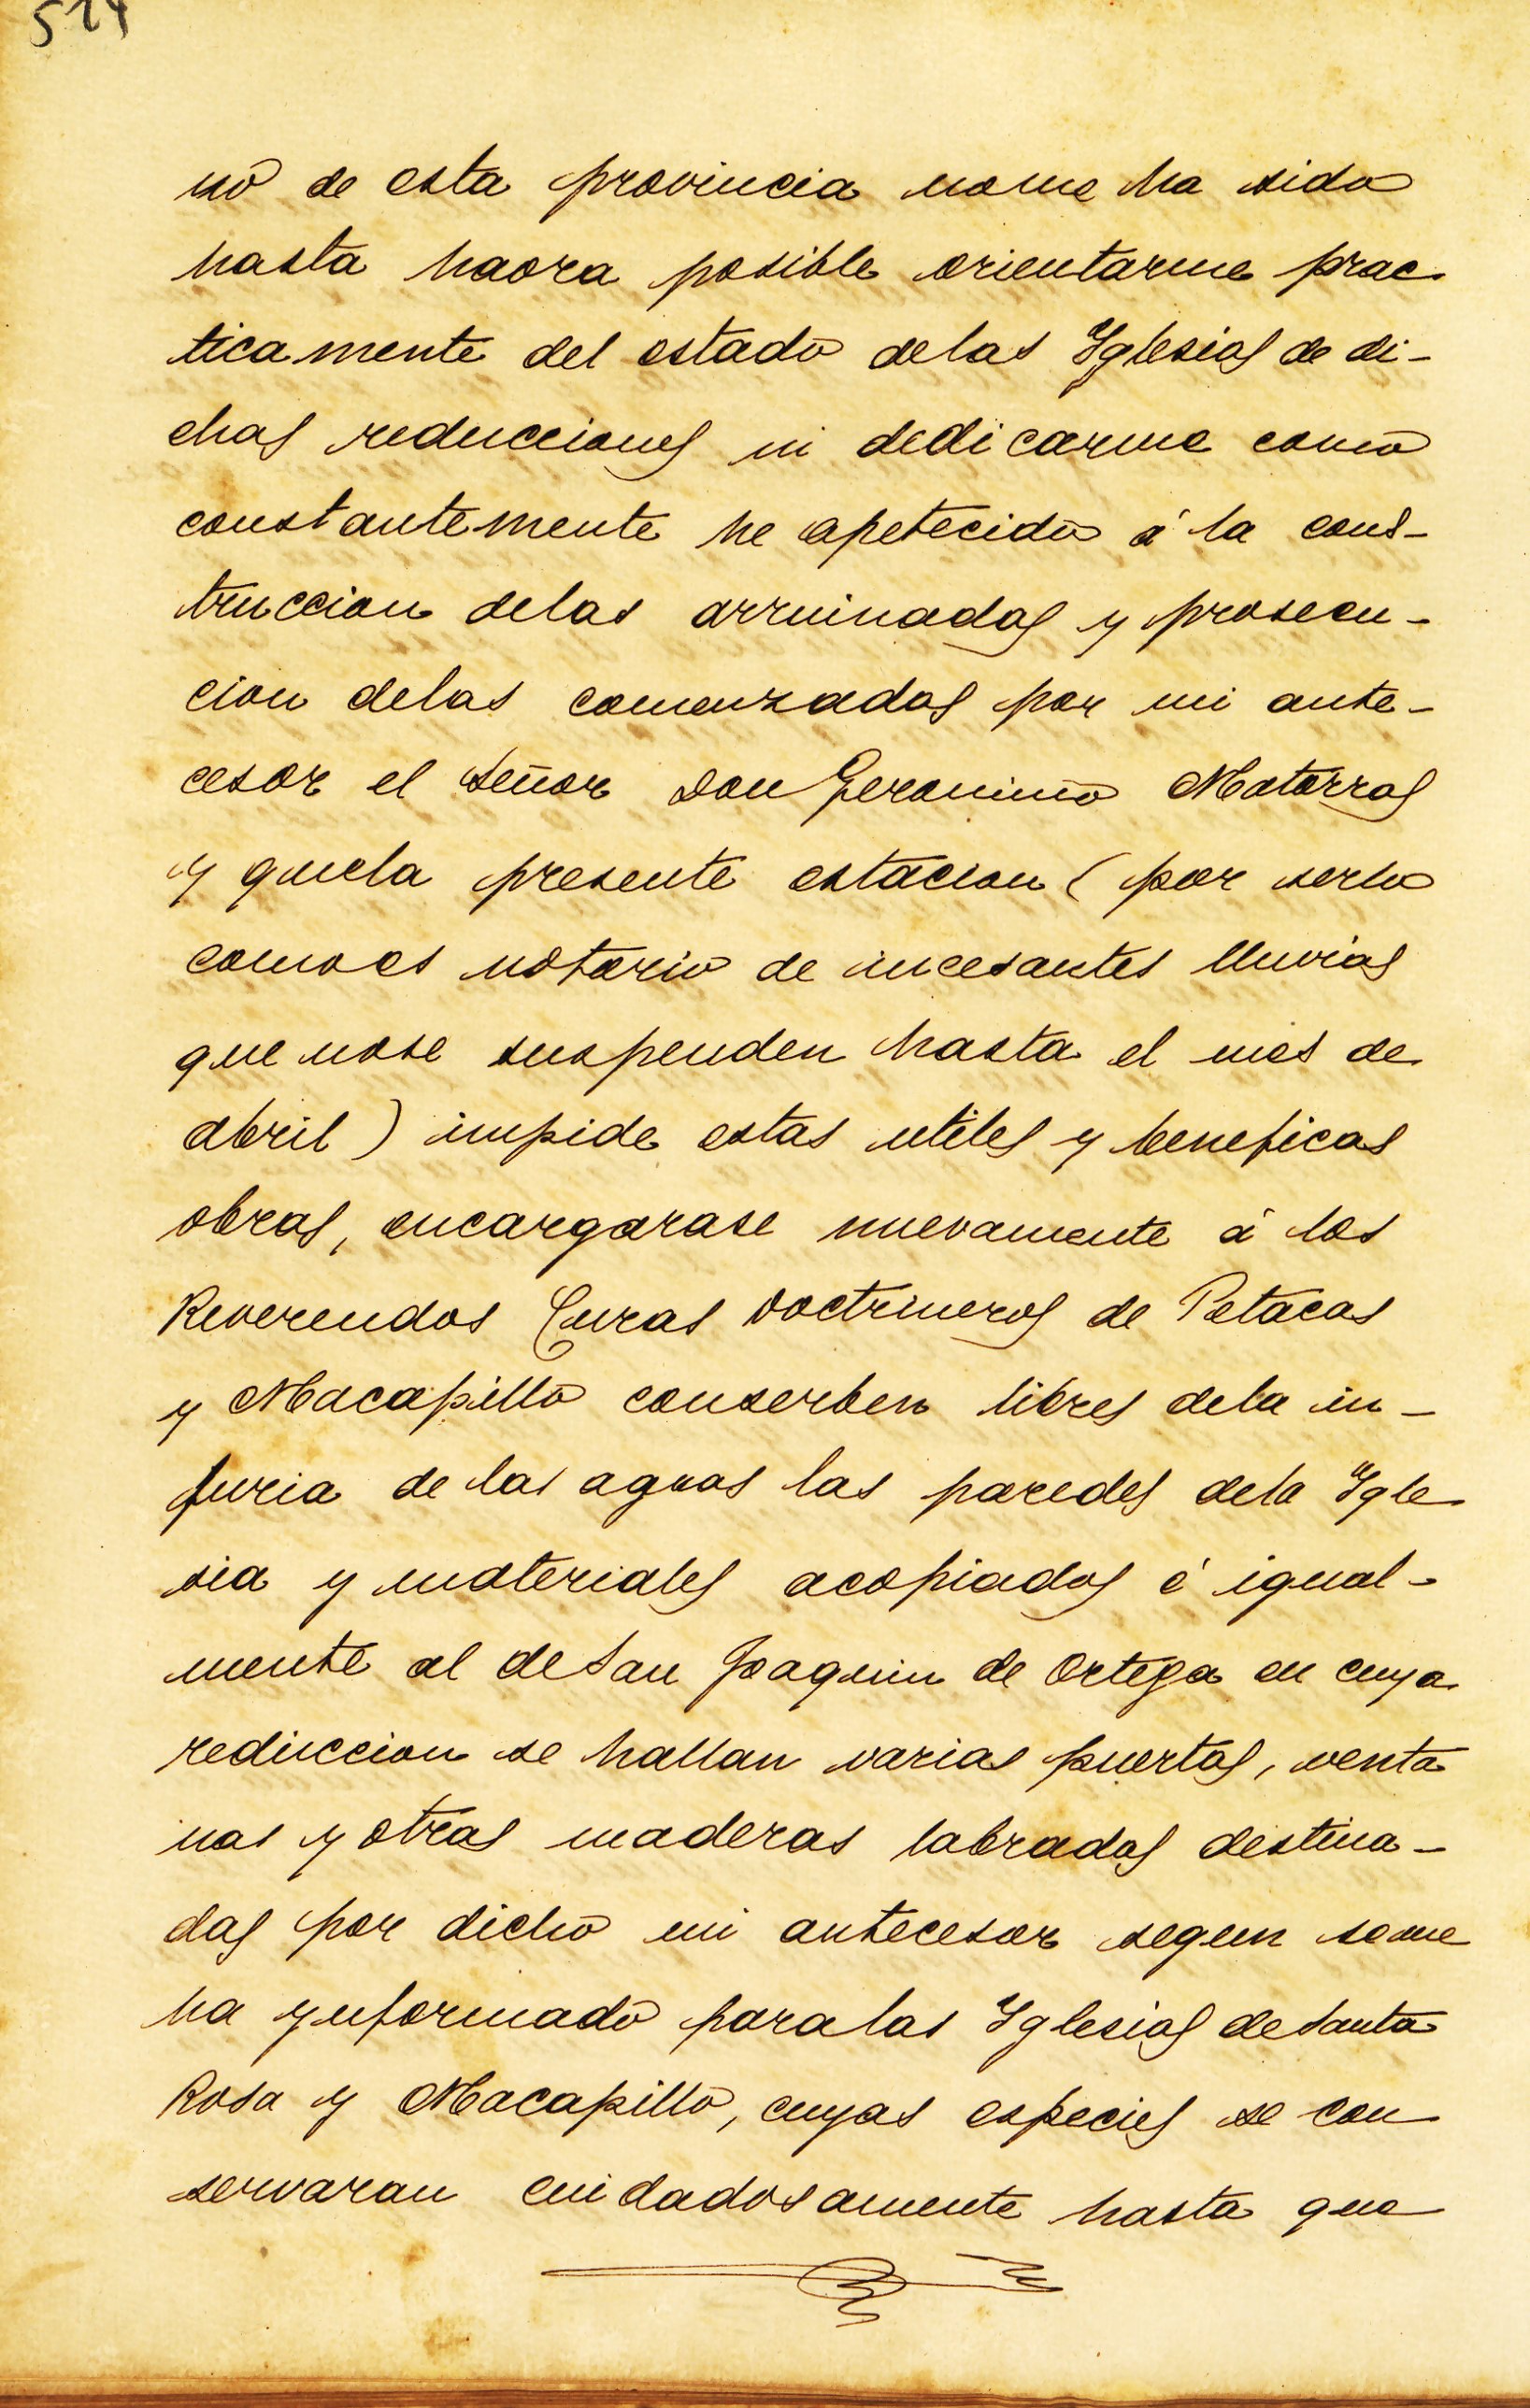 no de esta provincia nome ha sido
hasta haora posible orientarme prac
ticamente del estado delas Yglesias de di-
chas reducciones ni dedicarme como
constantemente he apetecido á la cons-
truccion delas arruinadas y prosecu-
cion delas comenzadas por mi ante-
cesor el Señor Don Geronimo Matorras
y quela presente estacion (por serlo
comoes notorio de incesantes lluvias
que nose suspenden hasta el mes de
abril) impide estas utiles y beneficas
obras, encargarase nuevamente á los
Reverendos Curas Doctrineros de Petacas
y Macapillo conserben libres dela in-
juria de las aguas las paredes dela Ygle
sia y materiales acopiados é igual-
mente al deSan Joaquin de Ortega en cuya
reduccion se hallan varias puertas, venta
nas y otras maderas labradas destina-
das por dicho mi antecesor segun seme
ha ynformado paralas Yglesias deSanta
Rosa y Macapillo, cuyas especies se con
servaran cuidadosamente hasta que